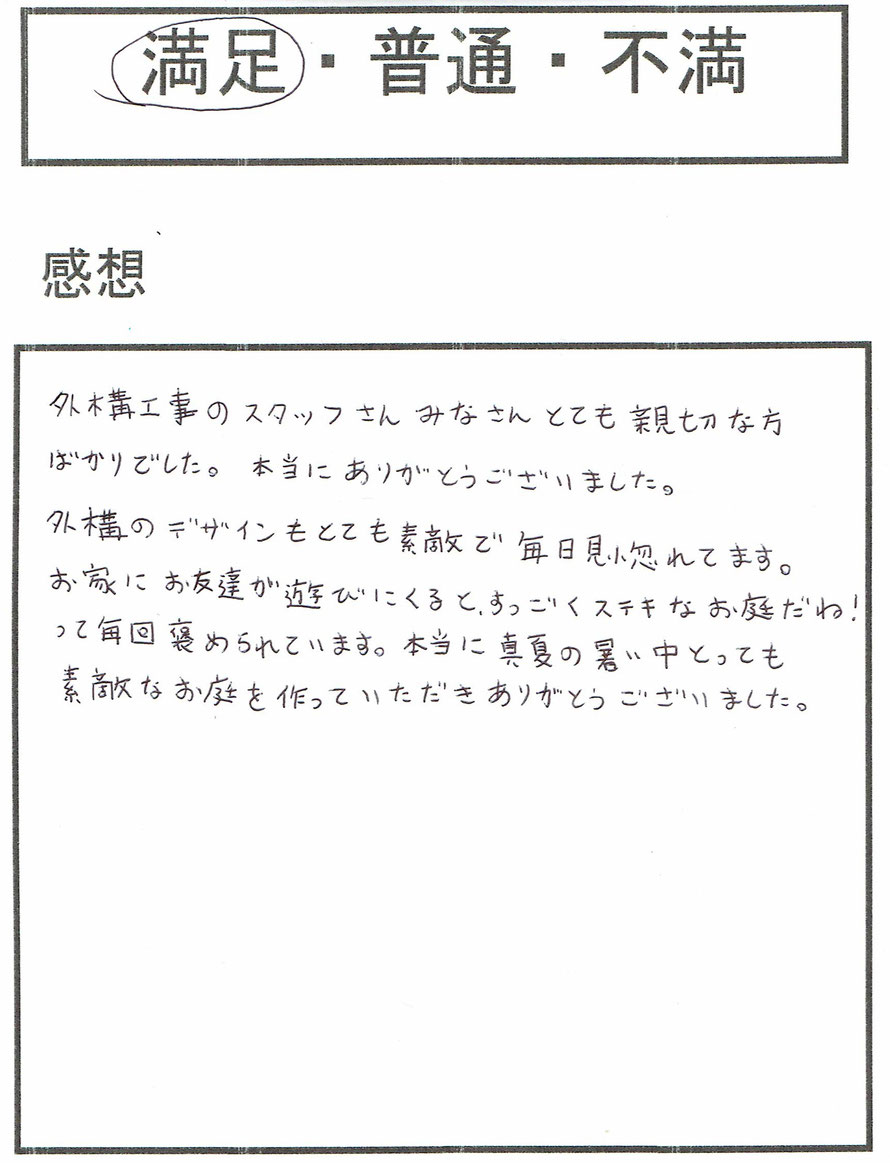 満足・普通・不満
感想
外構工事のスタッフさんみなさんとても親切な方
ばかりでした。本当にありがとうございました。
外構のデザインもとても素敵で毎日見惚れてます。
お家にお友達が遊びにくると、すっごくステキなお庭だね!
って毎回褒められています。本当に真夏の暑い中とっても
素敵なお庭を作っていただきありがとうございました。